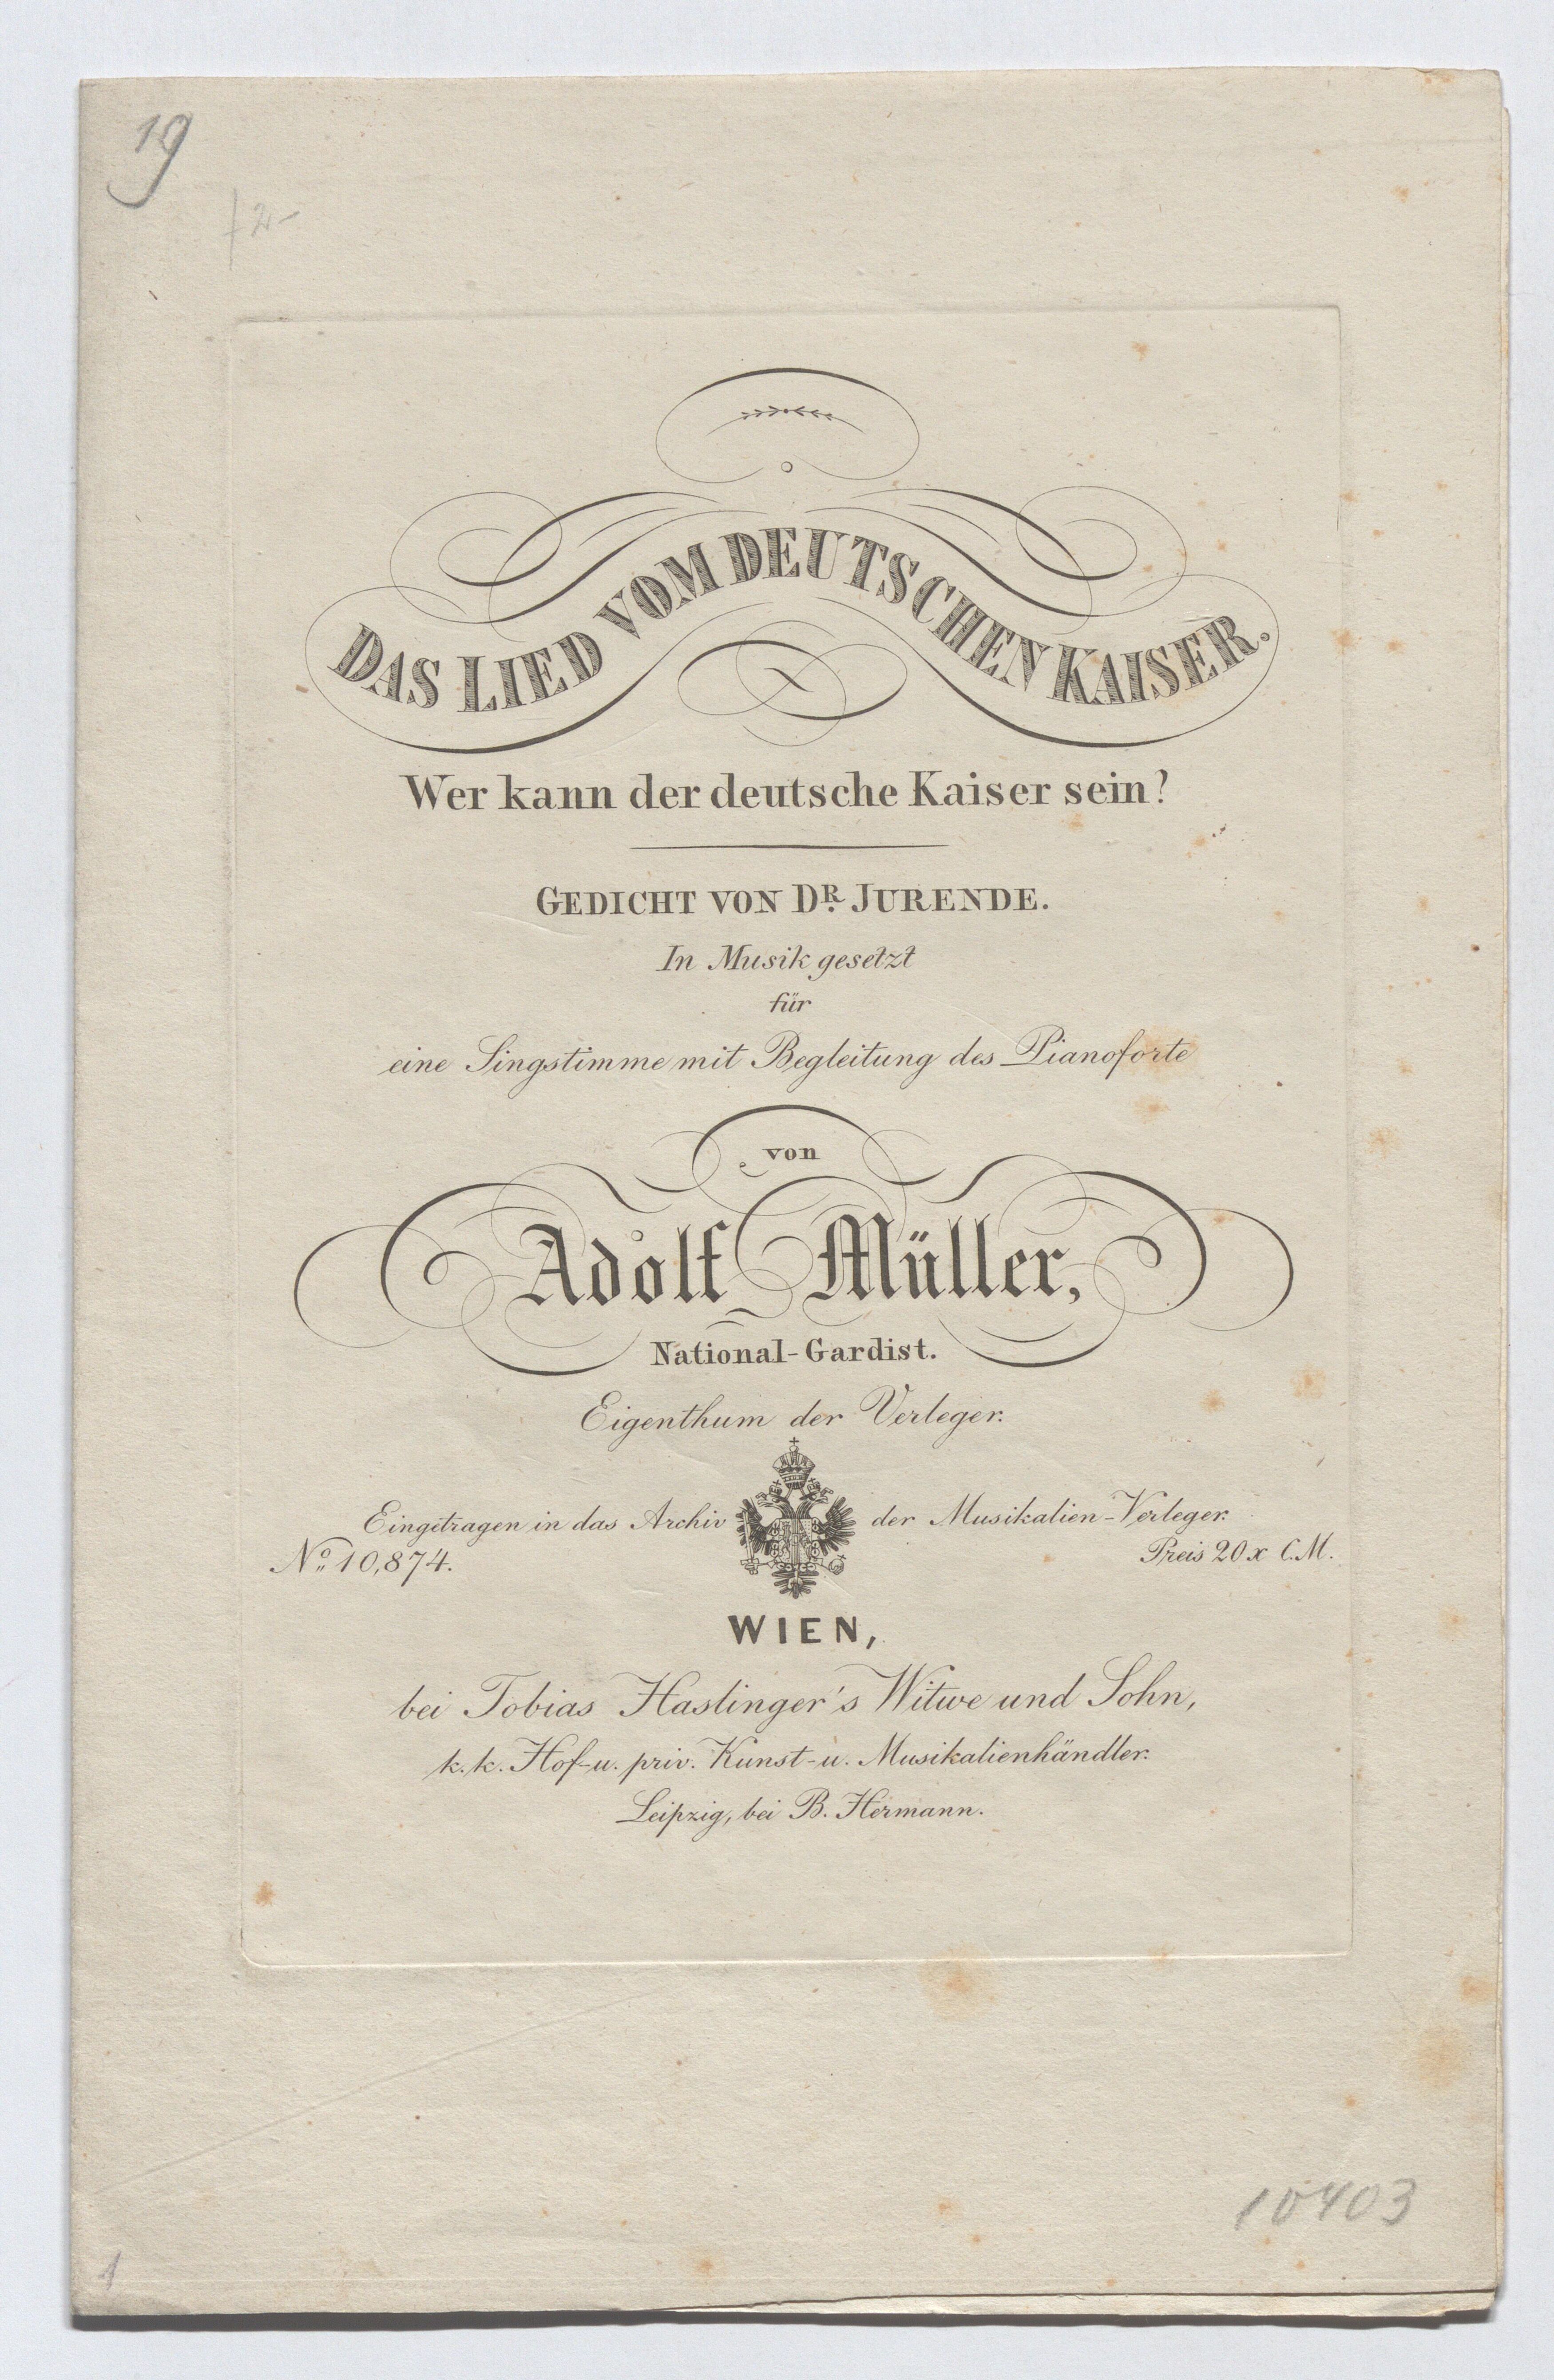 19
f 2-
DAS LIED VOM DEUTSCHEN KAISER.
Wer kann der deutsche Kaiser sein?
GEDICHT VON DR. JURENDE.
In Musik gesetzt
für
eine Singstimme mit Begleitung des Pianoforte
von
Adolf Müller,
National-Gardist.
Eigenthum der Verleger.
Eingetragen in das Archiv der Musikalien-Verleger.
No. 10,874. Preis 20 x C.M.
WIEN,
bei Tobias Haslinger's Witwe und Sohn,
k.k. Hof-u. priv. Kunst-u. Musikalienhändler.
Leipzig, bei B. Hermann.
10403
1